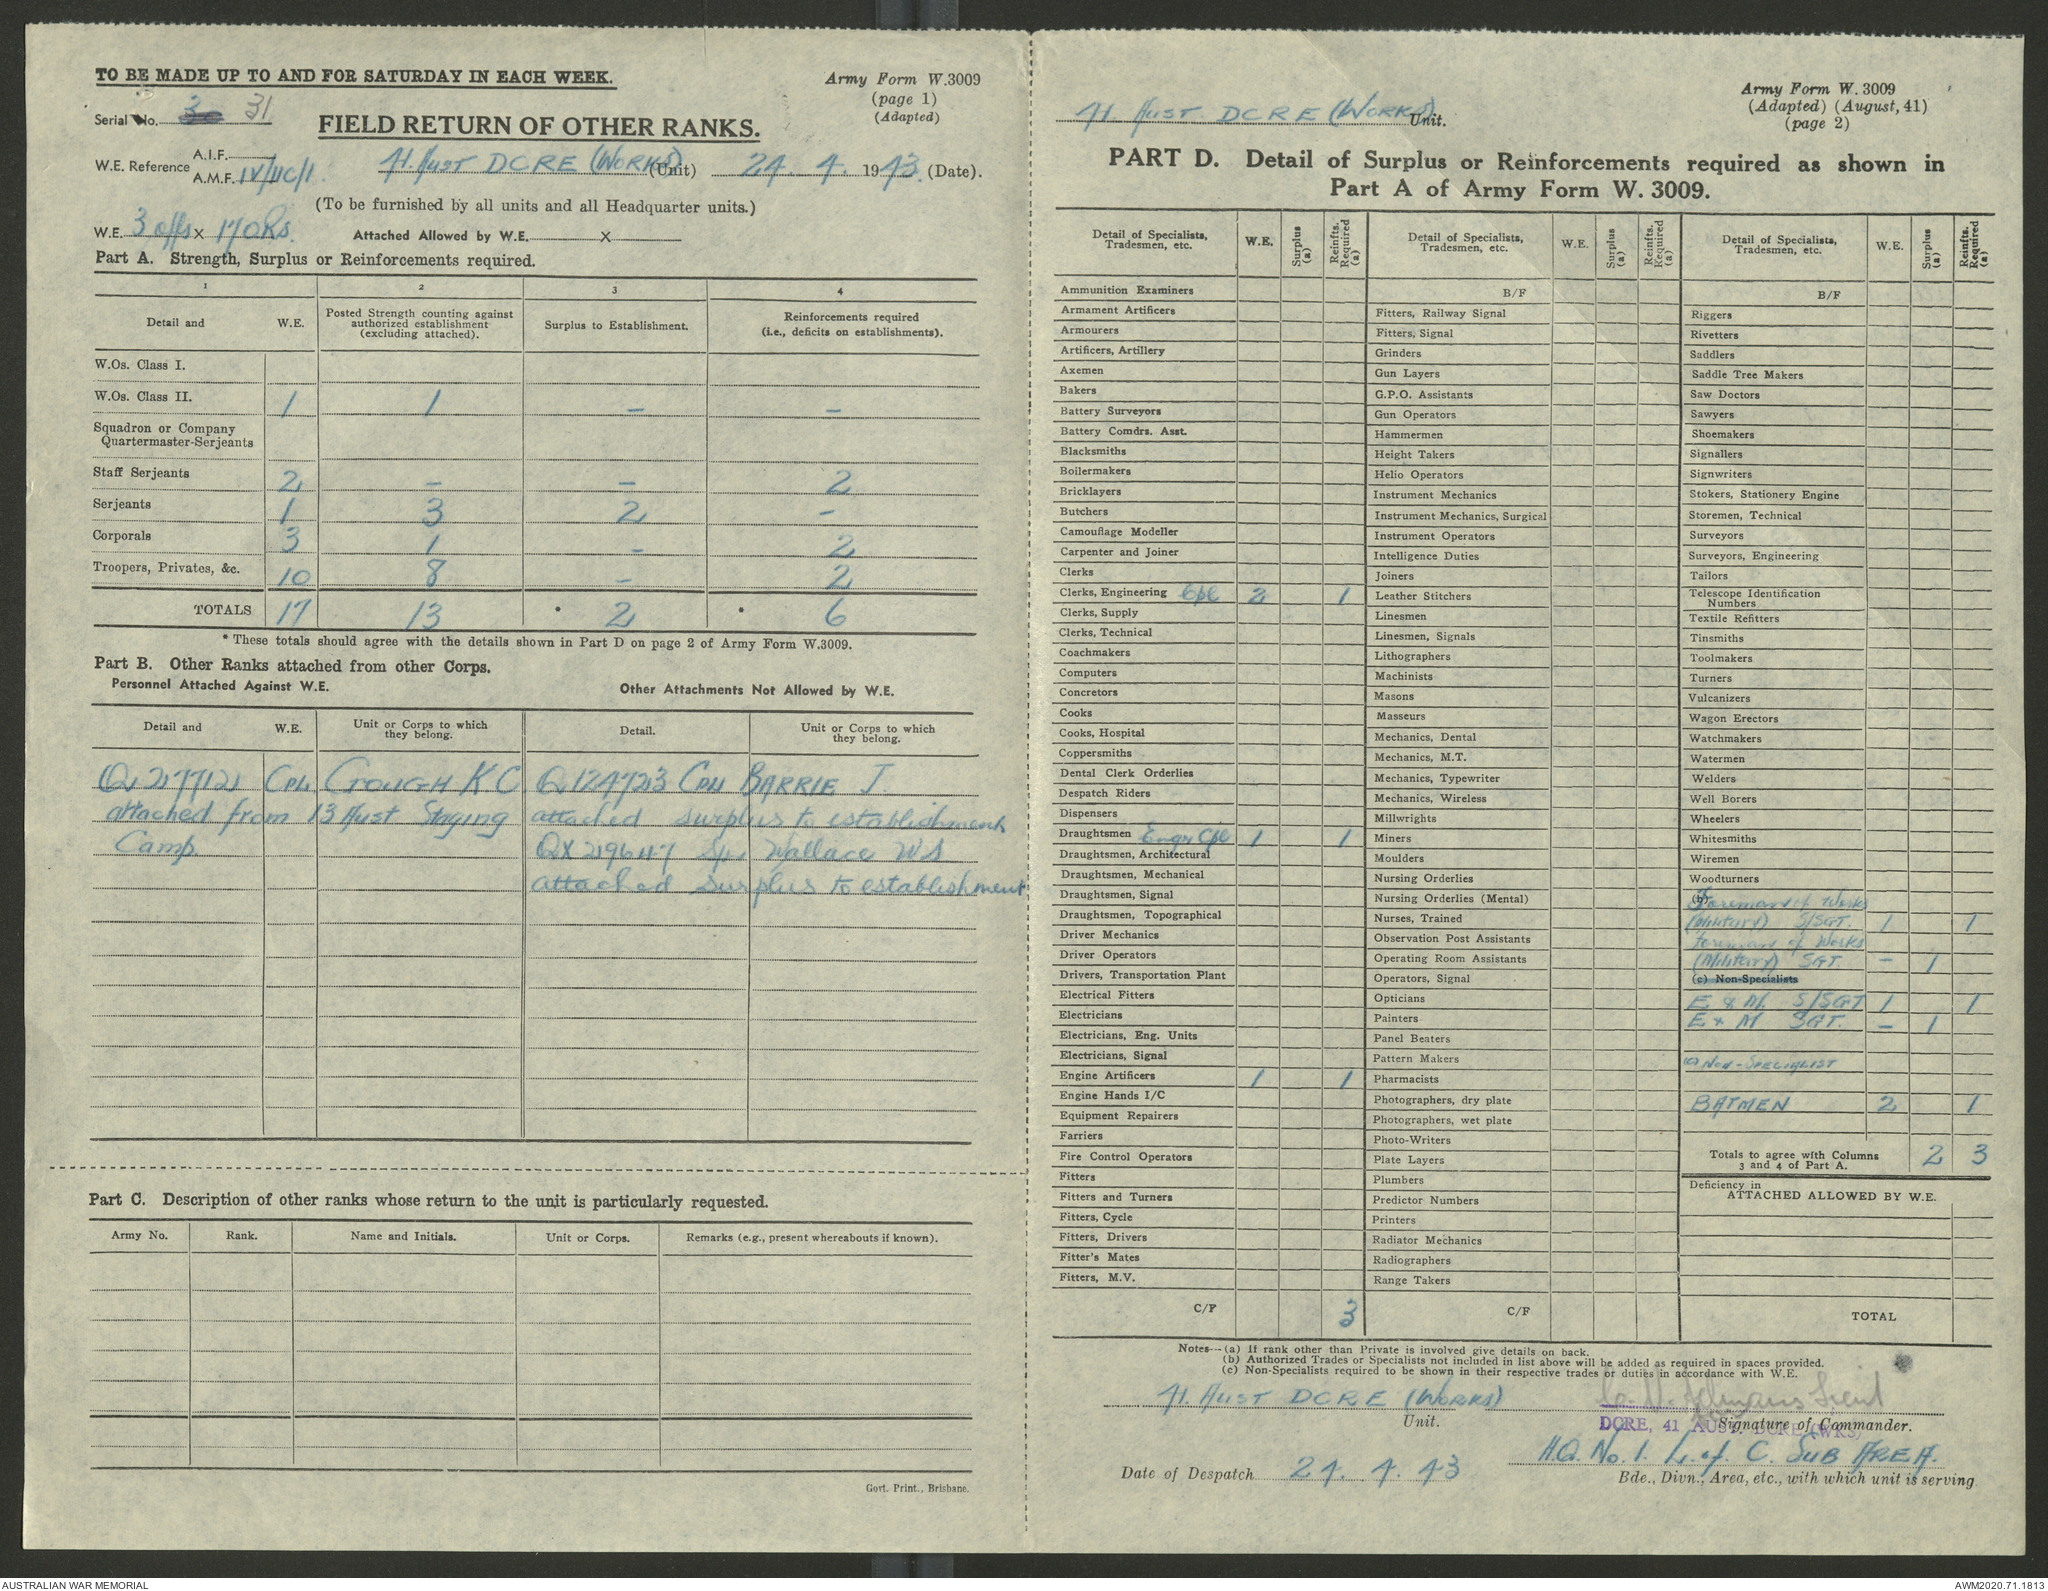 TO BE MADE UP TO AND FOR SATURDAY IN EACH WEEK.
Army Form W.3009
(page 1)
(Adapted)
Serial No. 30 31
FIELD RETURN OF OTHER RANKS.
W.E. Reference A.I.F.
A.M.F. IV/11C/1.
41. Aust DCRE (Works) (Unit) 24. 4. 1943. (Date).
(To be furnished by all units and all Headquarter units.)
W.E. 3 offs x 17 ORs. Attached Allowed by W.E. x
Part A. Strength, Surplus or Reinforcements required.
1 2 3 4
Detail and W.E. Posted Strength counting against authorized establishment (excluding attached). Surplus to Establishment. Reinforcements required (i.e., deficits on establishments).
W.Os. Class I.
W.Os. Class II. 1 1 - -
Squadron or Company
Quartermaster-Serjeants
Staff Serjeants 2 - - 2
Serjeants 1 3 2 -
Corporals 3 1 - 2
Troopers, Privates, &c. 10 8 - 2
TOTALS 17 13 * 2 * 6
* These totals should agree with the details shown in Part D on page 2 of Army Form W.3009.
Part B. Other Ranks attached from other Corps.
Personnel Attached Against W.E. Other Attachments Not Allowed by W.E.
Detail and W.E. Unit or Corps to which they belong. Detail. Unit or Corps to which they belong.
Q217712 Cpl Gough K C Q124723 Cpl Barrie J.
attached from 13 Aust Staging attached surplus to establishment
Camp QX219647 Spr Wallace WS
attached surplus to establishment
Part C. Description of other ranks whose return to the unit is particularly requested.
Army No. Rank. Name and Initials. Unit or Corps. Remarks (e.g., present whereabouts if known).
Govt. Print., Brisbane.
41. Aust DCRE (Works) Unit.
Army Form W. 3009
(Adapted) (August, 41)
(page 2)
PART D. Detail of Surplus or Reinforcements required as shown in
Part A of Army Form W. 3009.
Detail of Specialists, Tradesmen, etc. W.E. Surplus (a) Reinfts. Required (a)
Ammunition Examiners
Armament Artificers
Armourers
Artificers, Artillery
Axemen
Bakers
Battery Surveyors
Battery Comdrs. Asst.
Blacksmiths
Boilermakers
Bricklayers
Butchers
Camouflage Modeller
Carpenter and Joiner
Clerks
Clerks, Engineering Cpl 2 1
Clerks, Supply
Clerks, Technical
Coachmakers
Computers
Concretors
Cooks
Cooks, Hospital
Coppersmiths
Dental Clerk Orderlies
Despatch Riders
Dispensers
Draughtsmen Engr Cpl 1 1
Draughtsmen, Architectural
Draughtsmen, Mechanical
Draughtsmen, Signal
Draughtsmen, Topographical
Driver Mechanics
Driver Operators
Drivers, Transportation Plant
Electrical Fitters
Electricians
Electricians, Eng. Units
Electricians, Signal
Engine Artificers 1 1
Engine Hands I/C
Equipment Repairers
Farriers
Fire Control Operators
Fitters
Fitters and Turners
Fitters, Cycle
Fitters, Drivers
Fitter's Mates
Fitters, M.V.
C/F 3
Detail of Specialists, Tradesmen, etc. W.E. Surplus (a) Reinfts. Required (a)
B/F
Fitters, Railway Signal
Fitters, Signal
Grinders
Gun Layers
G.P.O. Assistants
Gun Operators
Hammermen
Height Takers
Helio Operators
Instrument Mechanics
Instrument Mechanics, Surgical
Instrument Operators
Intelligence Duties
Joiners
Leather Stitchers
Linesmen
Linesmen, Signals
Lithographers
Machinists
Masons
Masseurs
Mechanics, Dental
Mechanics, M.T.
Mechanics, Typewriter
Mechanics, Wireless
Millwrights
Miners
Moulders
Nursing Orderlies
Nursing Orderlies (Mental)
Nurses, Trained
Observation Post Assistants
Operating Room Assistants
Operators, Signal
Opticians
Painters
Panel Beaters
Pattern Makers
Pharmacists
Photographers, dry plate
Photographers, wet plate
Photo-Writers
Plate Layers
Plumbers
Predictor Numbers
Printers
Radiator Mechanics
Radiographers
Range Takers
C/F
Detail of Specialists, Tradesmen, etc. W.E. Surplus (a) Reinfts. Required (a)
B/F
Riggers
Rivetters
Saddlers
Saddle Tree Makers
Saw Doctors
Sawyers
Shoemakers
Signallers
Signwriters
Stokers, Stationery Engine
Storemen, Technical
Surveyors
Surveyors, Engineering
Tailors
Telescope Identification
Numbers
Textile Refitters
Tinsmiths
Toolmakers
Turners
Vulcanizers
Wagon Erectors
Watchmakers
Watermen
Welders
Well Borers
Wheelers
Whitesmiths
Wiremen
Woodturners
(b) Foreman of Works
(Military) S/SGT. 1 1
Foreman of Works
(Military) SGT. - 1
(c) Non-Specialists
E & M. S/SGT 1 1
E & M SGT. - 1
(c) Non-Specialist
BATMEN 2 1
Totals to agree with Columns
3 and 4 of Part A. 2 3
Deficiency in
ATTACHED ALLOWED BY W.E.
TOTAL
Notes—(a) If rank other than Private is involved give details on back.
(b) Authorized Trades or Specialists not included in list above will be added as required in spaces provided.
(c) Non-Specialists required to be shown in their respective trades or duties in accordance with W.E.
41. Aust DCRE (Works)
Unit.
Lieut
Signature of Commander.
DCRE, 41 AUST. DCRE (WKS)
H.Q. No. 1. L. of C. Sub Area.
Date of Despatch 24. 4. 43
Bde., Divn., Area, etc., with which unit is serving.
AUSTRALIAN WAR MEMORIAL
AWM2020.71.1813